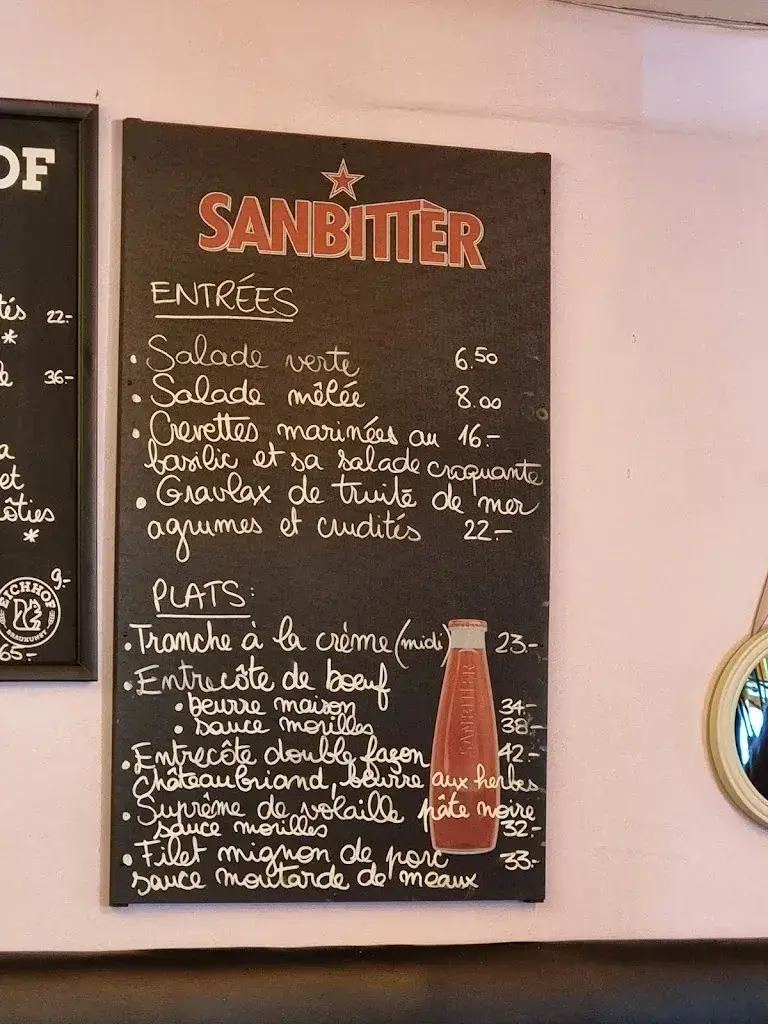 OF
tés 22.-
*
36.-
a
et
ôties
*
9.-
EICHHOF
BRAUKUNST
65.-
SANBITTER
ENTRÉES
• Salade verte 6.50
• Salade mêlée 8.00
• Crevettes marinées au 16.-
basilic et sa salade croquante
• Gravlax de truite de mer
agrumes et crudités 22.-
PLATS:
• Tranche à la crème (midi) 23.-
• Entrecôte de boeuf
• beurre maison 34.-
• sauce morilles 38.-
• Entrecôte double façon 42.-
Châteaubriand, beurre aux herbes
• Suprême de volaille pâte noire
sauce morilles 32.-
• Filet mignon de porc 33.-
sauce moutarde de meaux
SANBITTER